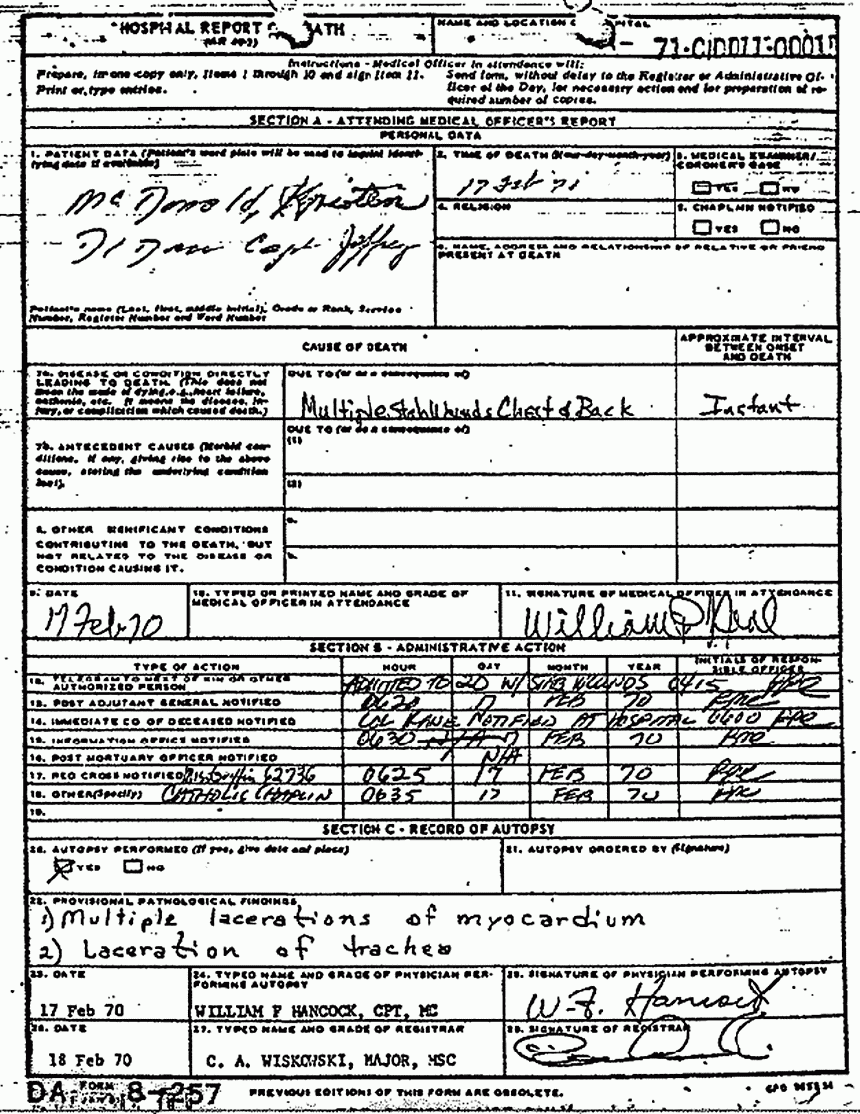 HOSPITAL REPORT OF DEATH
NAME AND LOCATION
71-CID011-00015
Instructions - Medical Officer in attendance will:
Prepare, in one copy only, Items 1 through 10 and sign Item 11.
Print or type entries.
Send form, without delay to the Registrar or Administrative Of-
ficer of the Day, for necessary action and for preparation of re-
quired number of copies.
SECTION A - ATTENDING MEDICAL OFFICER'S REPORT
PERSONAL DATA
1. PATIENT DATA (Patient's ward plate will be used to imprint identi-
fying data if available)
McDonald, Kristen
D/Dau Capt Jeffrey
Patient's name (Last, first, middle initial), Grade or Rank, Service
Number, Register Number and Ward Number
2. TIME OF DEATH (Hour-day-month-year)
17 Feb 71
3. MEDICAL EXAMINER/
CORONER'S CASE
YES NO
4. RELIGION
5. CHAPLAIN NOTIFIED
YES NO
6. NAME, ADDRESS AND RELATIONSHIP OF RELATIVE OR FRIEND
PRESENT AT DEATH
CAUSE OF DEATH
APPROXIMATE INTERVAL
BETWEEN ONSET
AND DEATH
7a. DISEASE OR CONDITION DIRECTLY
LEADING TO DEATH. (This does not
mean the mode of dying, e.g., heart failure,
asthenia, etc. It means the disease, in-
jury, or complication which caused death.)
DUE TO (or as a consequence of)
Multiple Stab Wounds Chest & Back
Instant
7b. ANTECEDENT CAUSES (Morbid con-
ditions, if any, giving rise to the above
cause, stating the underlying condition
last).
DUE TO (or as a consequence of)
(1)
(2)
8. OTHER SIGNIFICANT CONDITIONS
CONTRIBUTING TO THE DEATH, BUT
NOT RELATED TO THE DISEASE OR
CONDITION CAUSING IT.
a.
b.
9. DATE
17 Feb 70
10. TYPED OR PRINTED NAME AND GRADE OF
MEDICAL OFFICER IN ATTENDANCE
11. SIGNATURE OF MEDICAL OFFICER IN ATTENDANCE
William P Neal
SECTION B - ADMINISTRATIVE ACTION
TYPE OF ACTION HOUR DAY MONTH YEAR INITIALS OF RESPON-
SIBLE OFFICER
12. TELEGRAM TO NEXT OF KIN OR OTHER
AUTHORIZED PERSON
ADMITTED TO 2D W/ STAB WOUNDS 0415
13. POST ADJUTANT GENERAL NOTIFIED 0620 17 FEB 70
14. IMMEDIATE CO OF DECEASED NOTIFIED COL KANE NOTIFIED AT HOSPITAL 0600
15. INFORMATION OFFICE NOTIFIED 0630 17 FEB 70
16. POST MORTUARY OFFICER NOTIFIED N/A
17. RED CROSS NOTIFIED 62736 0625 17 FEB 70
18. OTHER (Specify) CATHOLIC CHAPLIN 0635 17 FEB 70
19.
SECTION C - RECORD OF AUTOPSY
20. AUTOPSY PERFORMED (If yes, give date and place)
YES NO
21. AUTOPSY ORDERED BY (Signature)
22. PROVISIONAL PATHOLOGICAL FINDINGS
1) Multiple lacerations of myocardium
2) Laceration of trachea
23. DATE
17 Feb 70
24. TYPED NAME AND GRADE OF PHYSICIAN PER-
FORMING AUTOPSY
WILLIAM F HANCOCK, CPT, MC
25. SIGNATURE OF PHYSICIAN PERFORMING AUTOPSY
W. F. Hancock
26. DATE
18 Feb 70
27. TYPED NAME AND GRADE OF REGISTRAR
C. A. WISKOWSKI, MAJOR, MSC
28. SIGNATURE OF REGISTRAR
DA FORM 8-257
PREVIOUS EDITIONS OF THIS FORM ARE OBSOLETE.